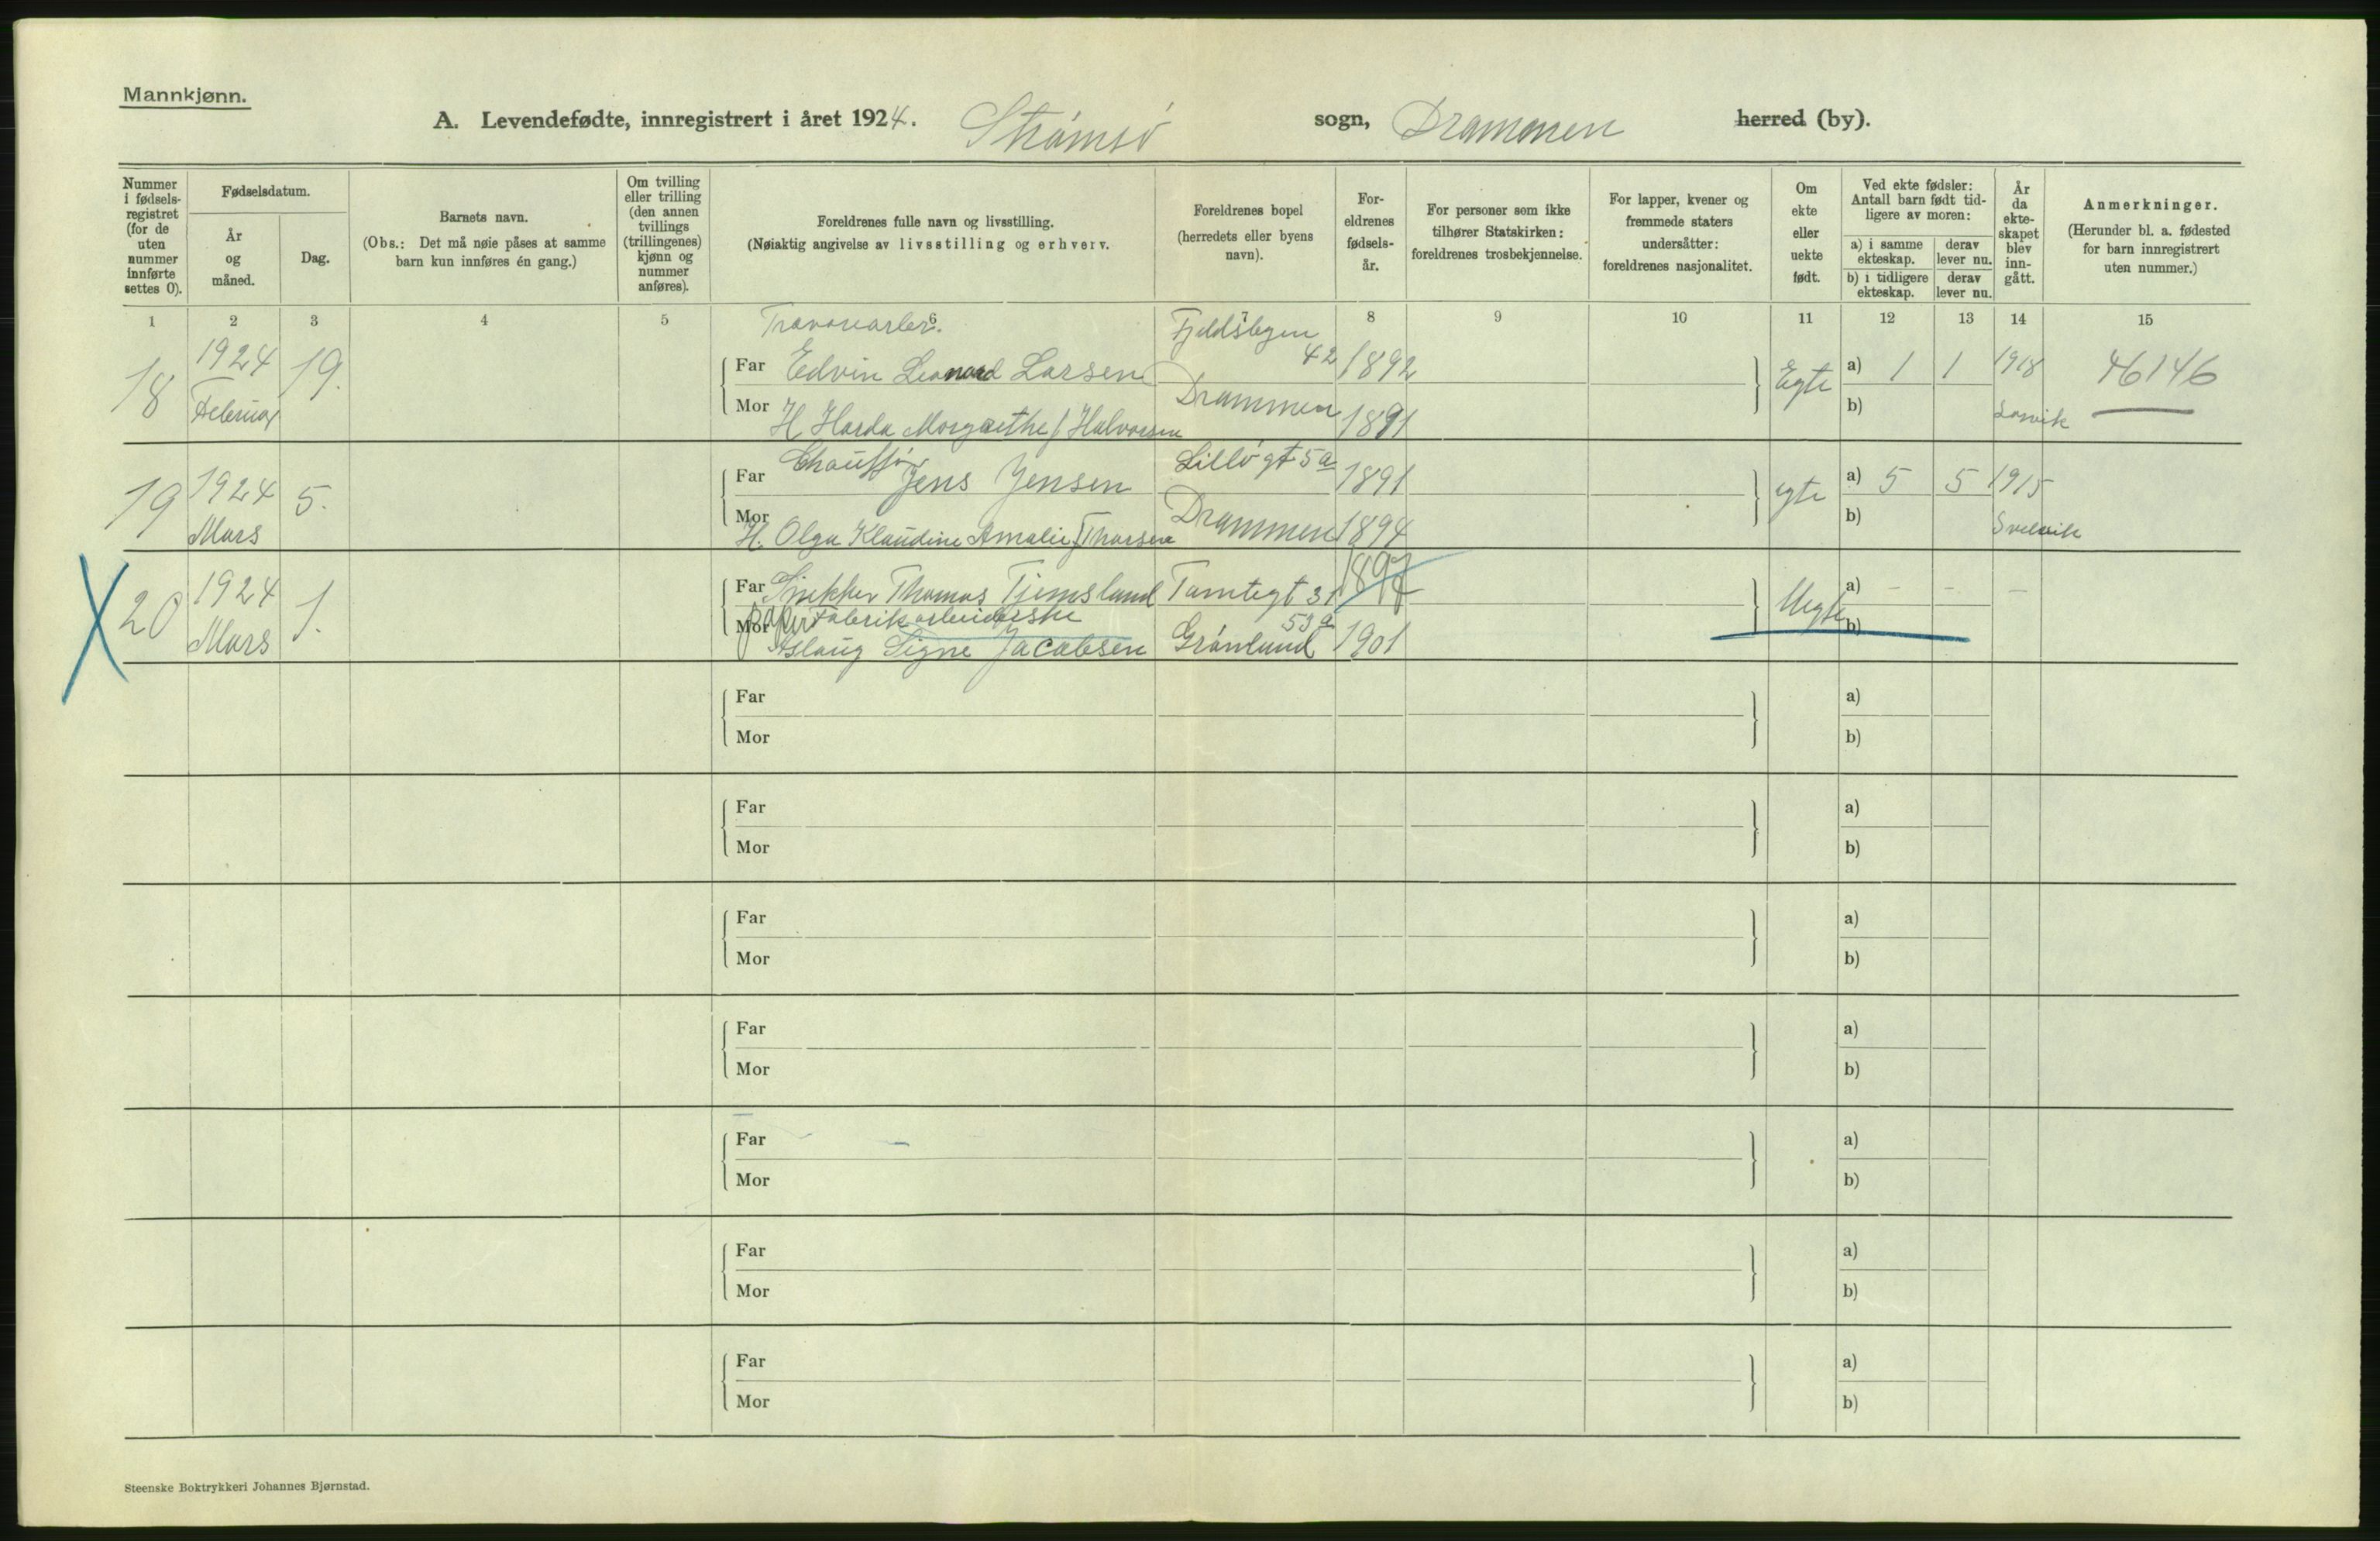 Mannkjønn.
A. Levendefødte, innregistrert i året 1924. Strømsø sogn, Drammen herred (by).
Nummer i fødsels-registret (for de uten nummer innførte settes 0).
Fødselsdatum.
År og måned.
Dag.
Barnets navn.
(Obs.: Det må nøie påses at samme barn kun innføres én gang.)
Om tvilling eller trilling (den annen tvillings (trillingenes) kjønn og nummer anføres).
Foreldrenes fulle navn og livsstilling.
(Nøiaktig angivelse av livsstilling og erhverv.
Foreldrenes bopel (herredets eller byens navn).
For-eldrenes fødsels-år.
For personer som ikke tilhører Statskirken: foreldrenes trosbekjennelse.
For lapper, kvener og fremmede staters undersåtter: foreldrenes nasjonalitet.
Om ekte eller uekte født.
Ved ekte fødsler: Antall barn født tid-ligere av moren:
a) i samme ekteskap.
derav lever nu.
b) i tidligere ekteskap.
derav lever nu.
År da ekte-skapet blev inn-gått.
Anmerkninger.
(Herunder bl. a. fødested for barn innregistrert uten nummer.)
1 2 3 4 5 6 7 8 9 10 11 12 13 14 15
Fjeldsbyen 42
18 1924 Februar 19. Far Edvin Leonard Larsen 1892 Egte a) 1 1 1918 46146
Mor H. Harda Margrethe f Halvorsen Drammen 1891 b) Larvik
Chauffør Lilløgt 5a
19 1924 Mars 5. Far Jens Jensen 1891 egte a) 5 5 1915
Mor H. Olga Klaudine Amalie f Thorsen Drammen 1894 b) Svelvik
20 1924 Mars 1. Far Snekker Thomas Tjemsland Tomtegt 31 1897 Uegte a) - - -
papirfabrikarbeiderske 53a
Mor Aslaug Signe Jacobsen Grønland 1901 b)
Far a)
Mor b)
Far a)
Mor b)
Far a)
Mor b)
Far a)
Mor b)
Far a)
Mor b)
Far a)
Mor b)
Far a)
Mor b)
Steenske Boktrykkeri Johannes Bjørnstad.